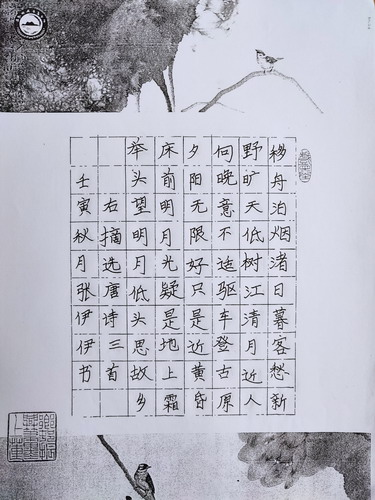 移舟泊烟渚日暮客愁新
野旷天低树江清月近人
向晚意不适驱车登古原
夕阳无限好只是近黄昏
床前明月光疑是地上霜
举头望明月低头思故乡
右摘选唐诗三首
壬寅秋月张伊伊书